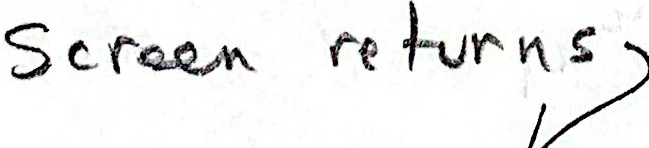 Screen returns